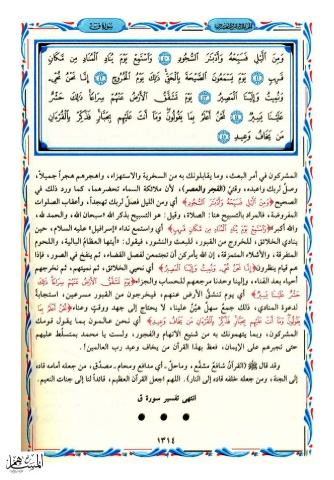 سورة ق
وَمِنَ ٱلَّيۡلِ فَسَبِّحۡهُ وَأَدۡبَٰرَ ٱلسُّجُودِ ٤٠ وَٱسۡتَمِعۡ يَوۡمَ يُنَادِ ٱلۡمُنَادِ مِن مَّكَانٖ
قَرِيبٖ ٤١ يَوۡمَ يَسۡمَعُونَ ٱلصَّيۡحَةَ بِٱلۡحَقِّۚ ذَٰلِكَ يَوۡمُ ٱلۡخُرُوجِ ٤٢ إِنَّا نَحۡنُ نُحۡيِۦ
وَنُمِيتُ وَإِلَيۡنَا ٱلۡمَصِيرُ ٤٣ يَوۡمَ تَشَقَّقُ ٱلۡأَرۡضُ عَنۡهُمۡ سِرَاعٗاۚ ذَٰلِكَ حَشۡرٌ
عَلَيۡنَا يَسِيرٞ ٤٤ نَّحۡنُ أَعۡلَمُ بِمَا يَقُولُونَۖ وَمَآ أَنتَ عَلَيۡهِم بِجَبَّارٖۖ فَذَكِّرۡ بِٱلۡقُرۡءَانِ
مَن يَخَافُ وَعِيدِ ٤٥
المشركون في أمر البعث، وما يقابلونك به من السخرية والاستهزاء، واهجرهم هجراً جميلاً،
وصلِّ لربك واعبده، وقتيْ (الفجر والعصر)، لأن ملائكة السماء تحضرهما، كما ورد ذلك في
الصحيح ﴿وَمِنَ ٱلَّيۡلِ فَسَبِّحۡهُ وَأَدۡبَٰرَ ٱلسُّجُودِ﴾ أي ومن الليل فصلِّ لربك تهجداً، وأعقاب الصلوات
المفروضة، فالمراد بالتسبيح هنا: الصلاة، وقيل: هو التسبيح بذكر الله «سبحان الله، والحمد لله،
والله أكبر» ﴿وَٱسۡتَمِعۡ يَوۡمَ يُنَادِ ٱلۡمُنَادِ مِن مَّكَانٖ قَرِيبٖ﴾ أي واستمع نداء «إسرافيل» عليه السلام، حين
ينادي الخلائق، للخروج من القبور، للبعث والنشور، فيقول: «أيتها العظامُ البالية، واللحوم
المتفرقة، والأشلاء المتمزقة، إن الله يأمركن أن تجتمعن لفصل القضاء»، ثم ينفخ في الصور، فإذا
هم قيام ينظرون ﴿إِنَّا نَحۡنُ نُحۡيِۦ وَنُمِيتُ وَإِلَيۡنَا ٱلۡمَصِيرُ﴾ أي نحيي الخلائق، ثم نميتهم، ثم نخرجهم
أحياء بعد الفناء، وإلينا وحدنا مرجعهم للحساب والجزاء ﴿يَوۡمَ تَشَقَّقُ ٱلۡأَرۡضُ عَنۡهُمۡ سِرَاعٗاۚ ذَٰلِكَ
حَشۡرٌ عَلَيۡنَا يَسِيرٞ﴾ أي يوم تنشقُّ الأرض عنهم، فيخرجون من القبور مسرعين، استجابةً
لدعوة المنادي، ذلك جمعٌ سهلٌ هيِّنٌ علينا، لا يحتاج إلى جهد ووقتٍ وعناء ﴿نَّحۡنُ أَعۡلَمُ بِمَا
يَقُولُونَۖ وَمَآ أَنتَ عَلَيۡهِم بِجَبَّارٖۖ فَذَكِّرۡ بِٱلۡقُرۡءَانِ مَن يَخَافُ وَعِيدِ﴾ أي نحن عالمون بما يقول قومك
المشركون، وبما يتهمونك به من شنيع الاتهام والفجور، ولست يا محمد بمتسلِّط عليهم
حتى تجبرهم على الإيمان، فعظْ بهذا القرآن من يخاف وعيد رب العالمين!.
وقد قال ﷺ (القرآن شافعٌ مشفَّع، وماحلٌ ـ أي مدافع ومحام ـ مصدَّق، من جعله أمامه قاده
إلى الجنة، ومن جعله خلفه قاده إلى النار). اللهم اجعل القرآن العظيم، قائداً لنا إلى جنات النعيم.
انتهى تفسير سورة ق
١٣١٤